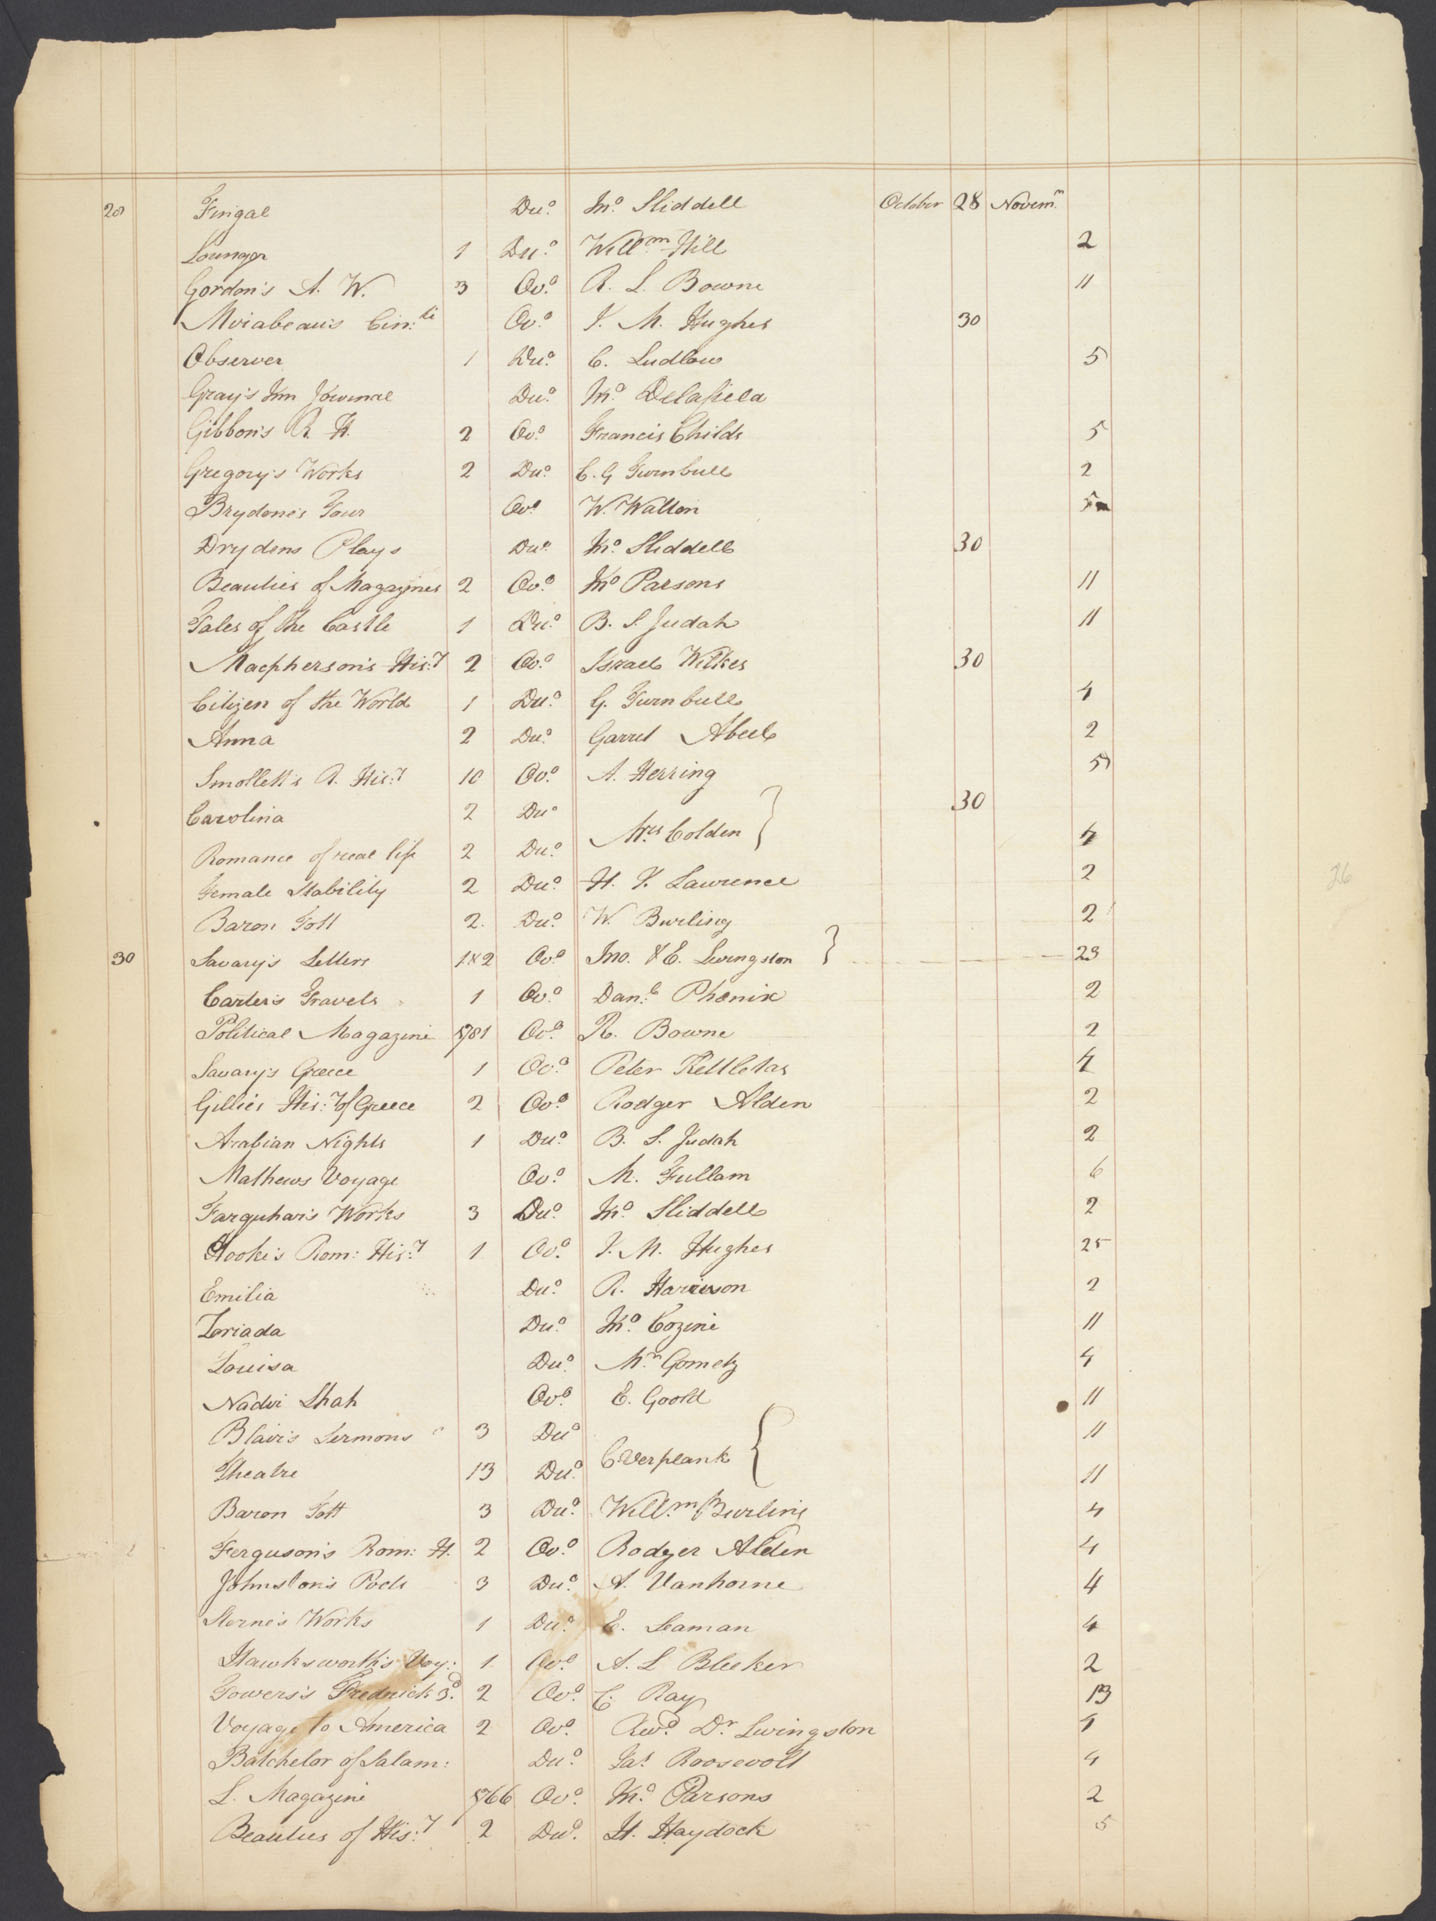 28 Fingal Duo. Jno. Sliddell October 28 Novemr.
Lounger 1 Duo. Willm. Hill 2
Gordon's A. W. 3 Ovo. R. L. Bowne 11
Mirabeau's Cin:ti Ovo. J. M. Hughes 30
Observer 1 Duo. C. Ludlow 5
Gray's Inn Journal Duo. Jno. Delafield
Gibbon's R. H. 2 Ovo. Francis Childs 5
Gregory's Works 2 Duo. C. G Turnbull 2
Brydone's Tour Ovo. W. Walton 5
Drydens Plays Duo. Jno. Sliddell 30
Beauties of Magazines 2 Ovo. Jno Parsons 11
Tales of the Castle 1 Duo. B. S. Judah 11
Macpherson's His:y 2 Ovo. Israel Wilkes 30
Citizen of the World 1 Duo. G. Turnbull 4
Anna 2 Duo. Garret Abeel 2
Smollett's R. His:y 10 Ovo. A. Herring 5
Carolina 2 Duo 30
Mrs Colden }
Romance of real life 2 Duo. 4
Female Stability 2 Duo. H. V. Lawrence 2
Baron Tott 2. Duo. W. Burling 2
30 Savary's Letters 1&2 Ovo. Jno. & E. Livingston } 23
Carter's Travels 1 Ovo. Danl. Phœnix 2
Political Magazine 1781 Ovo. R. Bowne 2
Savary's Greece 1 Ovo. Peter Kettletas 4
Gillies His:y of Greece 2 Ovo. Rodger Alden 2
Arabian Nights 1 Duo. B. S. Judah 2
Mathews Voyage Ovo. M. Fullam 6
Farquhar's Works 3 Duo. Jno. Sliddell 2
Hooke's Rom: His:y 1 Ovo. J. M. Hughes 25
Emilia Duo. R. Harrison 2
Zoriada Duo. Jno. Cozine 11
Louisa Duo. Mr. Gometz 4
Nadir Shah Ovo. E. Goold 11
Blair's Sermons 3 Duo 11
C Verplank {
Theatre 13 Duo. 11
Baron Tott 3 Duo. Willm. Burling 4
Ferguson's Rom: H. 2 Ovo. Rodger Alden 4
Johnston's Poets 3 Duo. A. Vanhorne 4
Sterne's Works 1 Duo. E. Seaman 4
Hawksworth's Voy: 1 Ovo. A. L Bleeker 2
Towers's Fredrick 3d. 2 Ovo. C. Ray 13
Voyage to America 2 Ovo. Revd. Dr. Livingston 4
Batchelor of Salam: Duo. Jas. Roosevolt 4
L. Magazine 1766 Ovo. Jno. Parsons 2
Beauties of His:y 2 Duo. H. Haydock 5
26